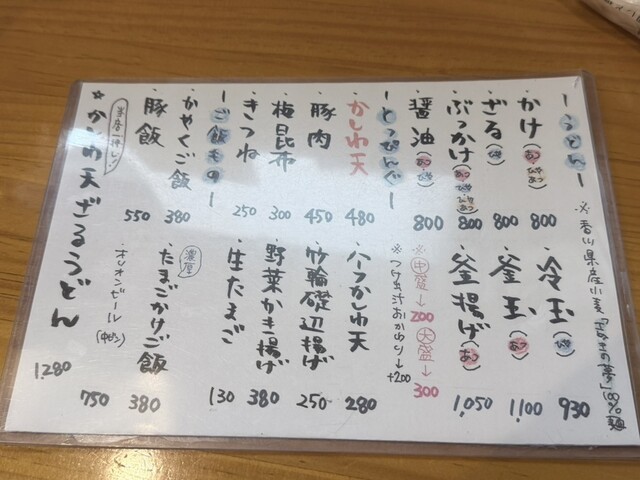 ※香川県産小麦「さぬきの夢」100%麺
ーうどんー
・かけ(あつ ひやあつ) 800
・ざる(ひや) 800
・ぶっかけ(あつ ひや ひやあつ) 800
・醤油(あつ ひや) 800
・冷玉(ひや) 930
・釜玉(あつ) 1,100
・釜揚げ(あつ) 1,050
※中盛→200 大盛→300
※つけ出汁おかわり→+200
ーとっぴんぐー
・かしわ天 480
・豚肉 450
・梅昆布 300
・きつね 250
・ハーフかしわ天 280
・竹輪磯辺揚げ 250
・野菜かき揚げ 380
・生たまご 130
ーご飯ものー
・かやくご飯 380
・豚飯 550
濃厚
・たまごかけご飯 380
・オリオンビール(中ビン) 750
当店一推し!
☆かしわ天ざるうどん 1,280